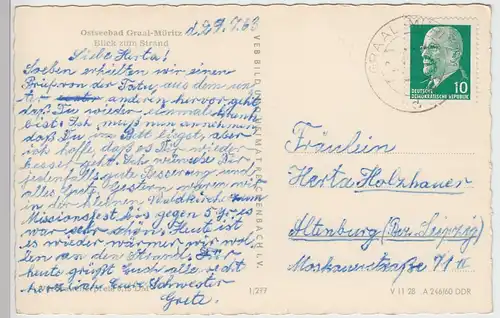 Ostseebad Graal-Müritz
Blick zum Strand
d. 29. 7. 63
Liebe Herta!
Soeben erhielten wir einen
Brief von der Tata, aus dem un-
ter anderem hervor geht,
daß Du wieder einmal krank
bist. Ich muß nun annehmen
daß Du im Bett liegst, aber
ich hoffe, daß es Dir wieder
besser geht. Ich wünsche Dir
jedenfalls gute Besserung und
alles Gute. Gestern waren wir
in der kleinen Waldkirche zum
Missionsfest bis gegen 5 Uhr. es
war sehr schön. Heute ist
es wieder wärmer wir wol-
len an den Strand. Für
heute grüßt Euch alle recht
herzlich Eure Schwester
Greta.
VEB BILD UND HEIMAT REICHENBACH I. V.
1/277
GRAAL-MÜ
DEUTSCHE
DEMOKRATISCHE REPUBLIK
10
Fräulein
Herta Holzhauer
Altenburg (Bez. Leipzig)
Moskauerstraße 71 II
V 11 28 A 246/60 DDR